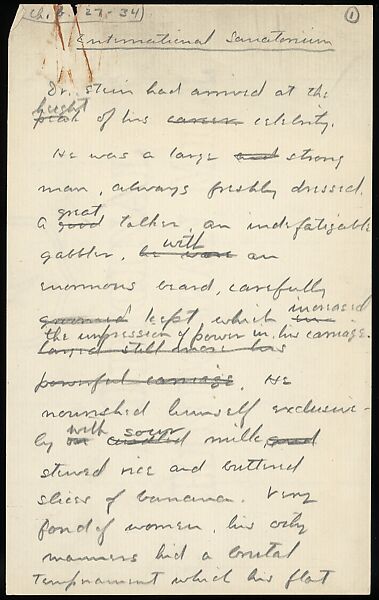 (Ch. 6. 27-34) 1
International Sanatorium
Dr. Stein had arrived at the
height
peak of his career celebrity.
He was a large and strong
man, always freshly dressed.
great
a good talker, an indefatigable
with
gobbler, he wore an
enormous beard, carefully
groomed kept which increased
the impression of power in his carriage.
larged still more his
powerful carriage. He
nourished himself exclusive-
with sour
ly on curdled milk, and
stewed rice and buttered
slices of banana. Very
fond of women, his oily
manners hid a brutal
temperament which his flat